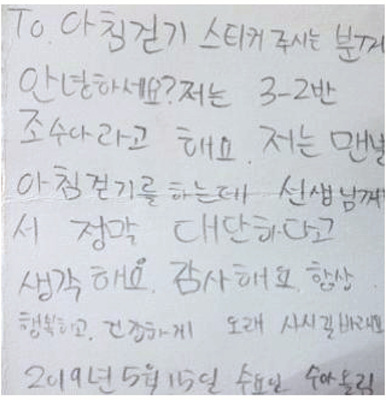 To. 아침걷기 스티커 주시는 분께
안녕하세요? 저는 3-2반
조수아라고 해요. 저는 맨날
아침걷기를 하는데 선생님께
서 정말 대단하다고
생각해요. 감사해요. 항상
행복하고, 건강하게 오래 사시길 바래요
2019년 5월 15일 수요일 수아올림